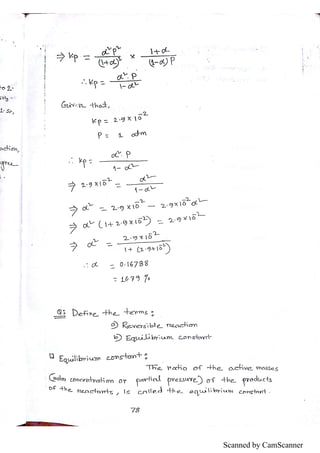 ⇒ Kp = α²P²/(1+α)² × 1+α/(1-α)P
∴ Kp = α²P/1-α²
Given that,
Kp = 2.9×10⁻²
P = 1 atm
∴ Kp = α²P/1-α²
⇒ 2.9×10⁻² = α²/1-α²
⇒ α² = 2.9×10⁻² - 2.9×10⁻²α²
⇒ α² (1+2.9×10⁻²) = 2.9×10⁻²
⇒ α² = 2.9×10⁻²/1+(2.9×10⁻²)
∴ α = 0.16788
= 16.79 %
Q: Define the terms:
a) Reversible reaction
b) Equilibrium constant
Equilibrium constant:
The ratio of the active masses
(molar concentration or partial pressure) of the products
of the reactants, is called the equilibrium constant.
78
Scanned by CamScanner